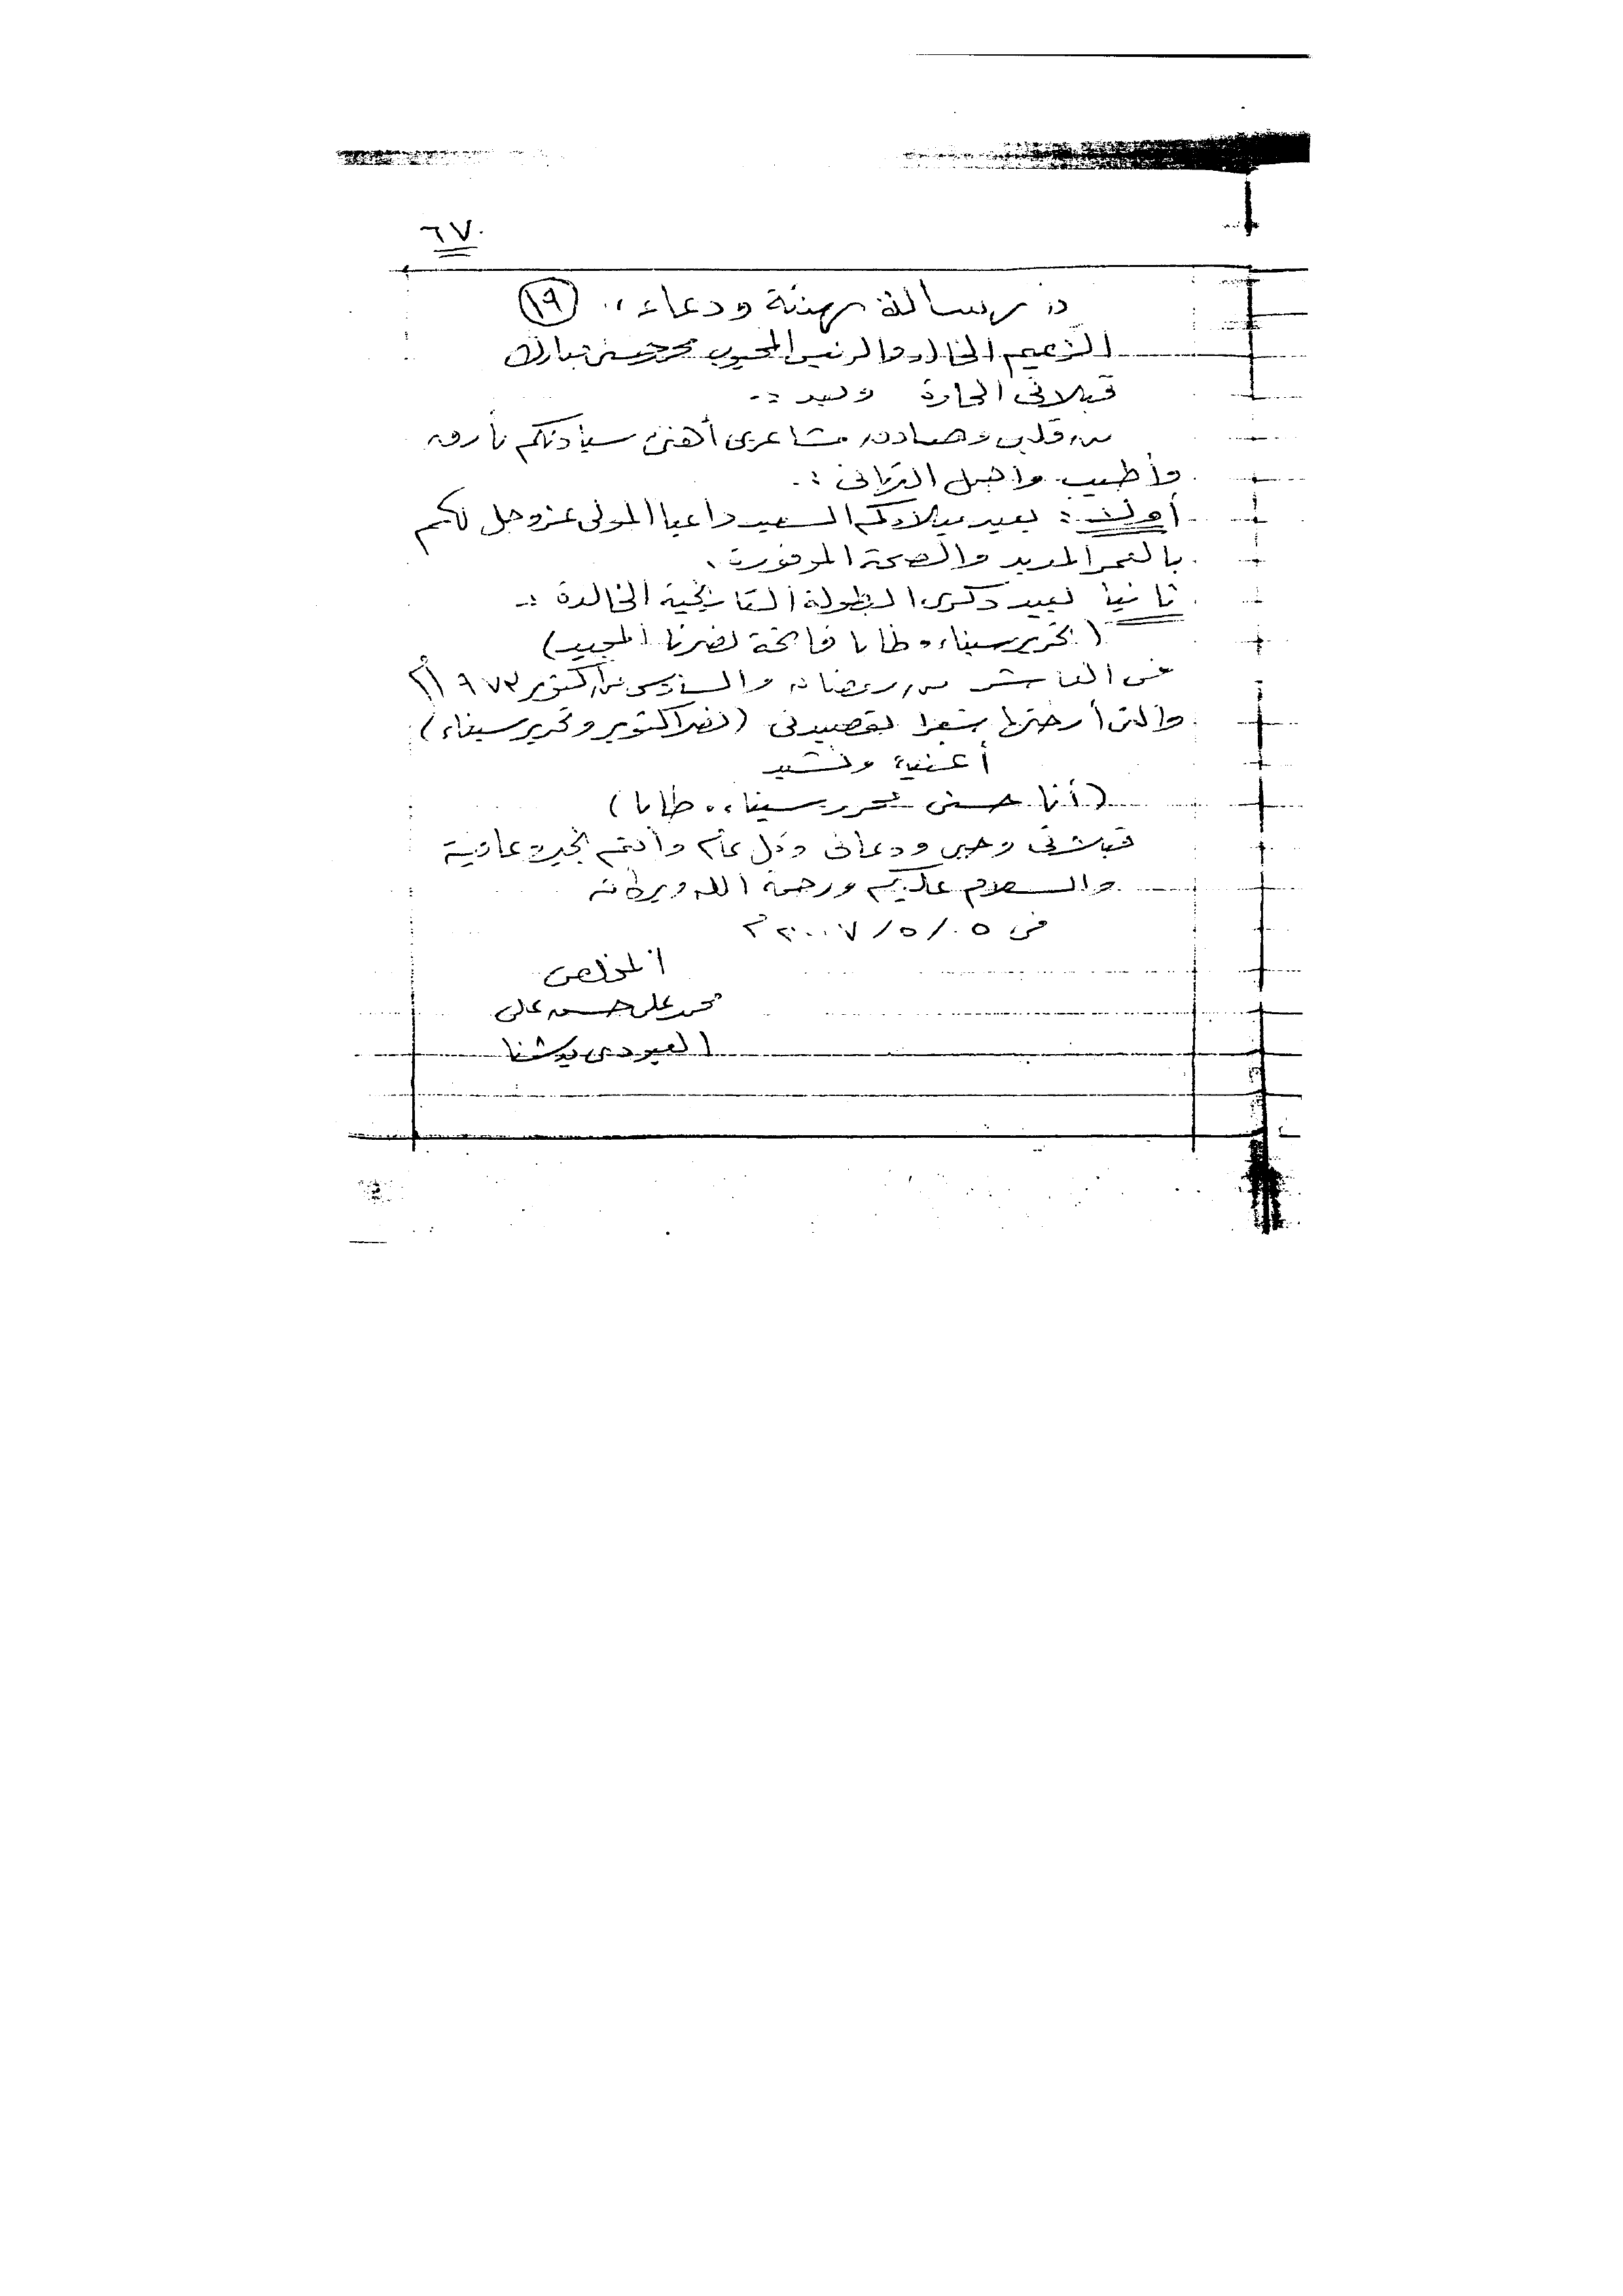 ٦٧
" رسالة تهنئة ودعاء " ١٩
الزعيم الخالد والرئيس المحبوب محمد حسنى مبارك
قبلاتى الحارة وبعد :-
من قلبى وصادق مشاعرى أهنئ سيادتكم بأرق
وأطيب وأجمل التهانى :-
أولا : بعيد ميلادكم السعيد داعيا المولى عز وجل لكم
بالعمر المديد والصحة الموفورة .
ثانيا بعيد ذكرى البطولة التاريخية الخالدة :-
( تحرير سيناء وطابا فاتحة نصرنا المجيد )
فى العاشر من رمضان والسادس من أكتوبر ١٩٧٣م
والتى أرختها شعرا بقصيدتى ( نصر اكتوبر وتحرير سيناء )
أغنية ونشيد
( أنا حسنى محرر سيناء .. طابا )
وحبى ودعائى وكل عام وأنتم بخير وعافية
والسلام عليكم ورحمة الله وبركاته
فى ٠٥ / ٥ / ٢٠٠٧م
المخلص
محمد على حسن على
العبودى بدشنا